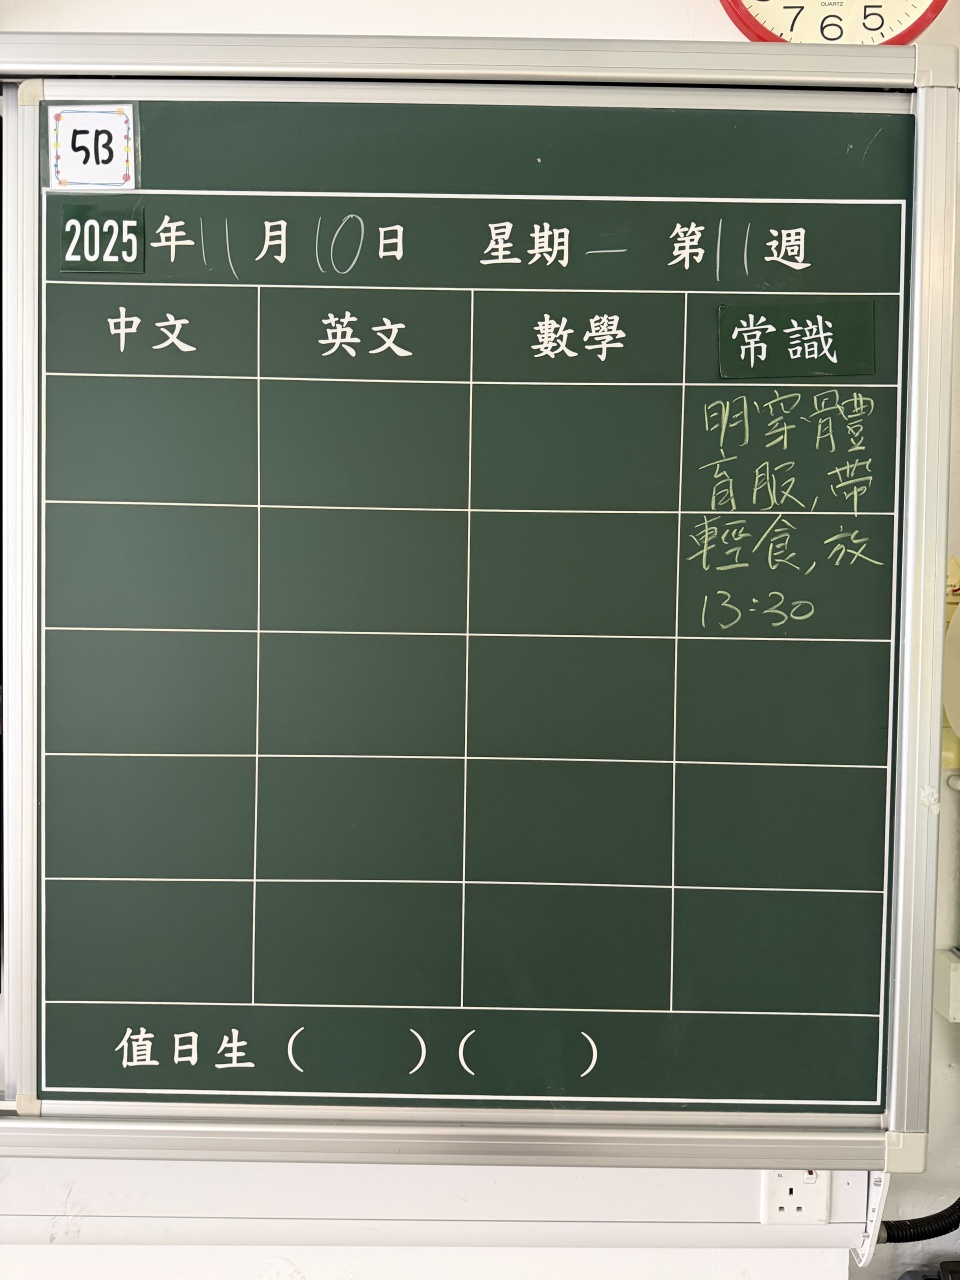 QUARTZ
7 6 5
5B
2025年11月10日 星期一 第11週
中文 英文 數學 常識
明穿體
育服,帶
輕食,放
13:30
值日生( )( )